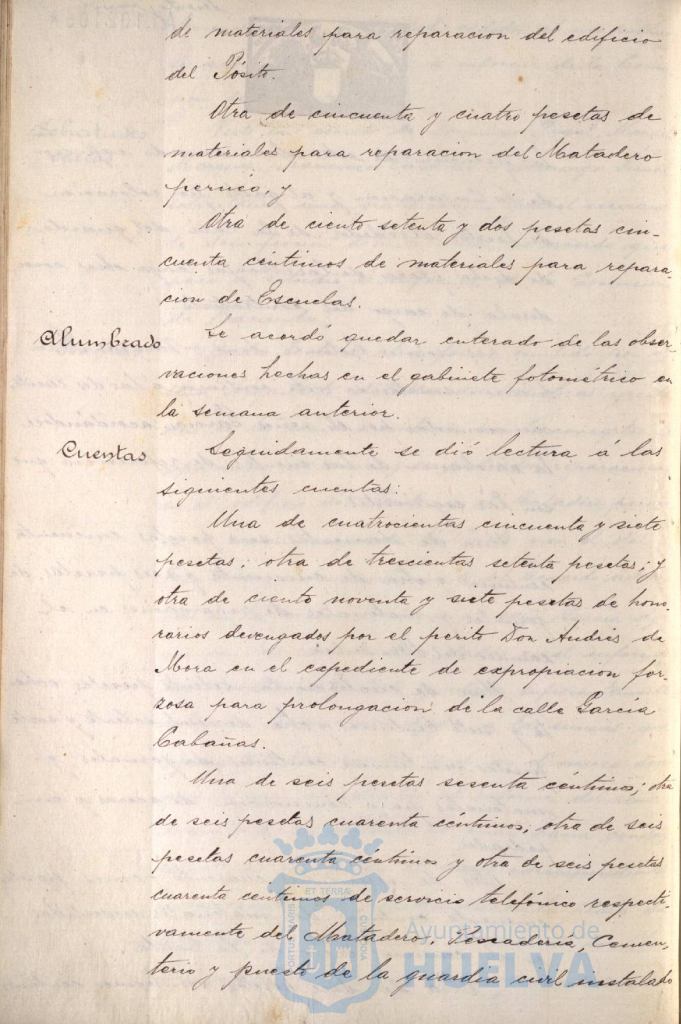 de materiales para reparacion del edificio
del Pósito.
Otra de cincuenta y cuatro pesetas de
materiales para reparacion del Matadero
y
Otra de ciento setenta y dos pesetas cin-
cuenta céntimos de materiales para repara-
cion de Escuelas.
Alumbrado
Se acordó quedar enterado de las obser-
vaciones hechas en el gabinete fotométrico en
la semana anterior.
Cuentas
Seguidamente se dió lectura á las
siguientes cuentas:
Una de cuatrocientas cincuenta y siete
pesetas; otra de trescientas setenta pesetas; y
otra de ciento noventa y siete pesetas de hono-
rarios devengados por el perito Don Andrés de
Mora en el expediente de expropiacion for-
zosa para prolongacion de la calle García
Cabañas.
Una de seis pesetas sesenta céntimos; otra
de seis pesetas cuarenta céntimos; otra de seis
pesetas cuarenta céntimos y otra de seis pesetas
cuarenta centimos de servicio telefónico respecti-
vamente del Matadero, Pescadería, Cemen-
terio y puesto de la guardia civil instalado
Ayuntamiento de
HUELVA